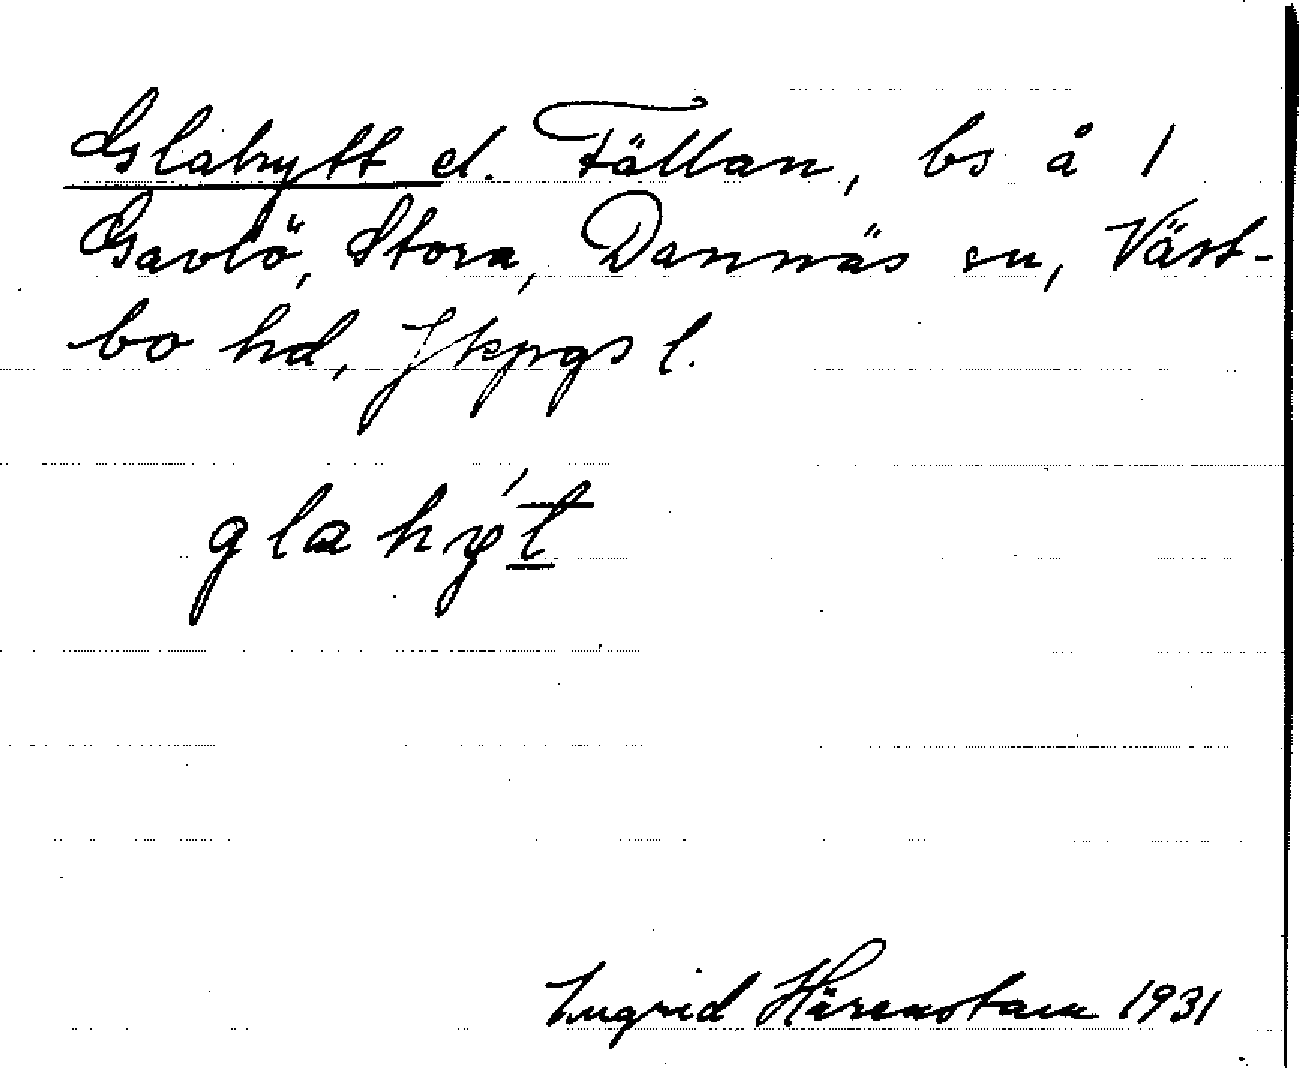 Glahytt el. Fällan, bs å 1
Gavlö, Stora, Dannäs sn, Väst-
bo hd, Jkpgs l.
glahýt
Ingrid Härenstam 1931